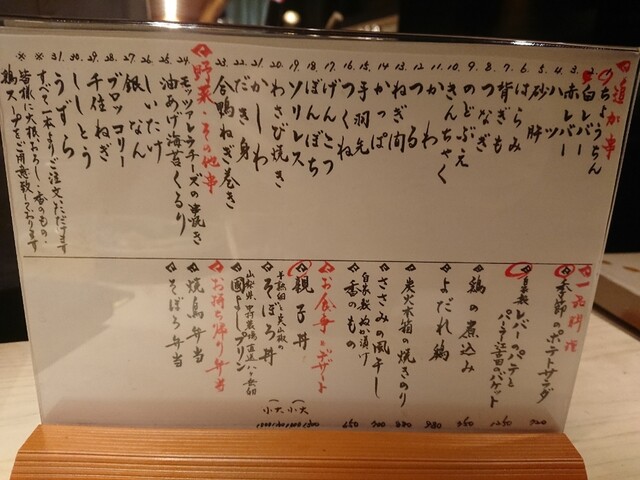 追加串
1. ちょうちん
2. 白レバー
3. 赤レバー
4. ハツ
5. 砂肝
6. はらみ
7. 背ぎも
8. つなぎ
9. のどぶえ
10. きんちゃく
11. かわ
12. つる
13. ねぎ間
14. ぺた
15. 手羽先
16. つくね
17. げんこつ
18. ぼんぼち
19. ソリレス
20. わさび焼き
21. かしわ
22. だき身
23. 合鴨ねぎ巻き
野菜・その他串
24. モッツァレラチーズの串焼き
25. 油あげ海苔くるり
26. しいたけ
27. 銀なん
28. ブロッコリー
29. 千住ねぎ
30. ししとう
31. うずら
※すべて一本よりご注文いただけます
※皆様に大根おろし・香のもの・
鶏スープをご用意致しております
一品料理
季節のポテトサラダ 720
自家製レバーのパテと
パラヲ吉田のバゲット 1250
鶏の煮込み
よだれ鶏 880
炭火木箱の焼きのり
ささみの風干し
自家製ぬか漬け
香のもの 650
お食事とデザート
親子丼
そぼろ丼
國よしプリン
お持ち帰り弁当
焼鳥弁当
そぼろ弁当